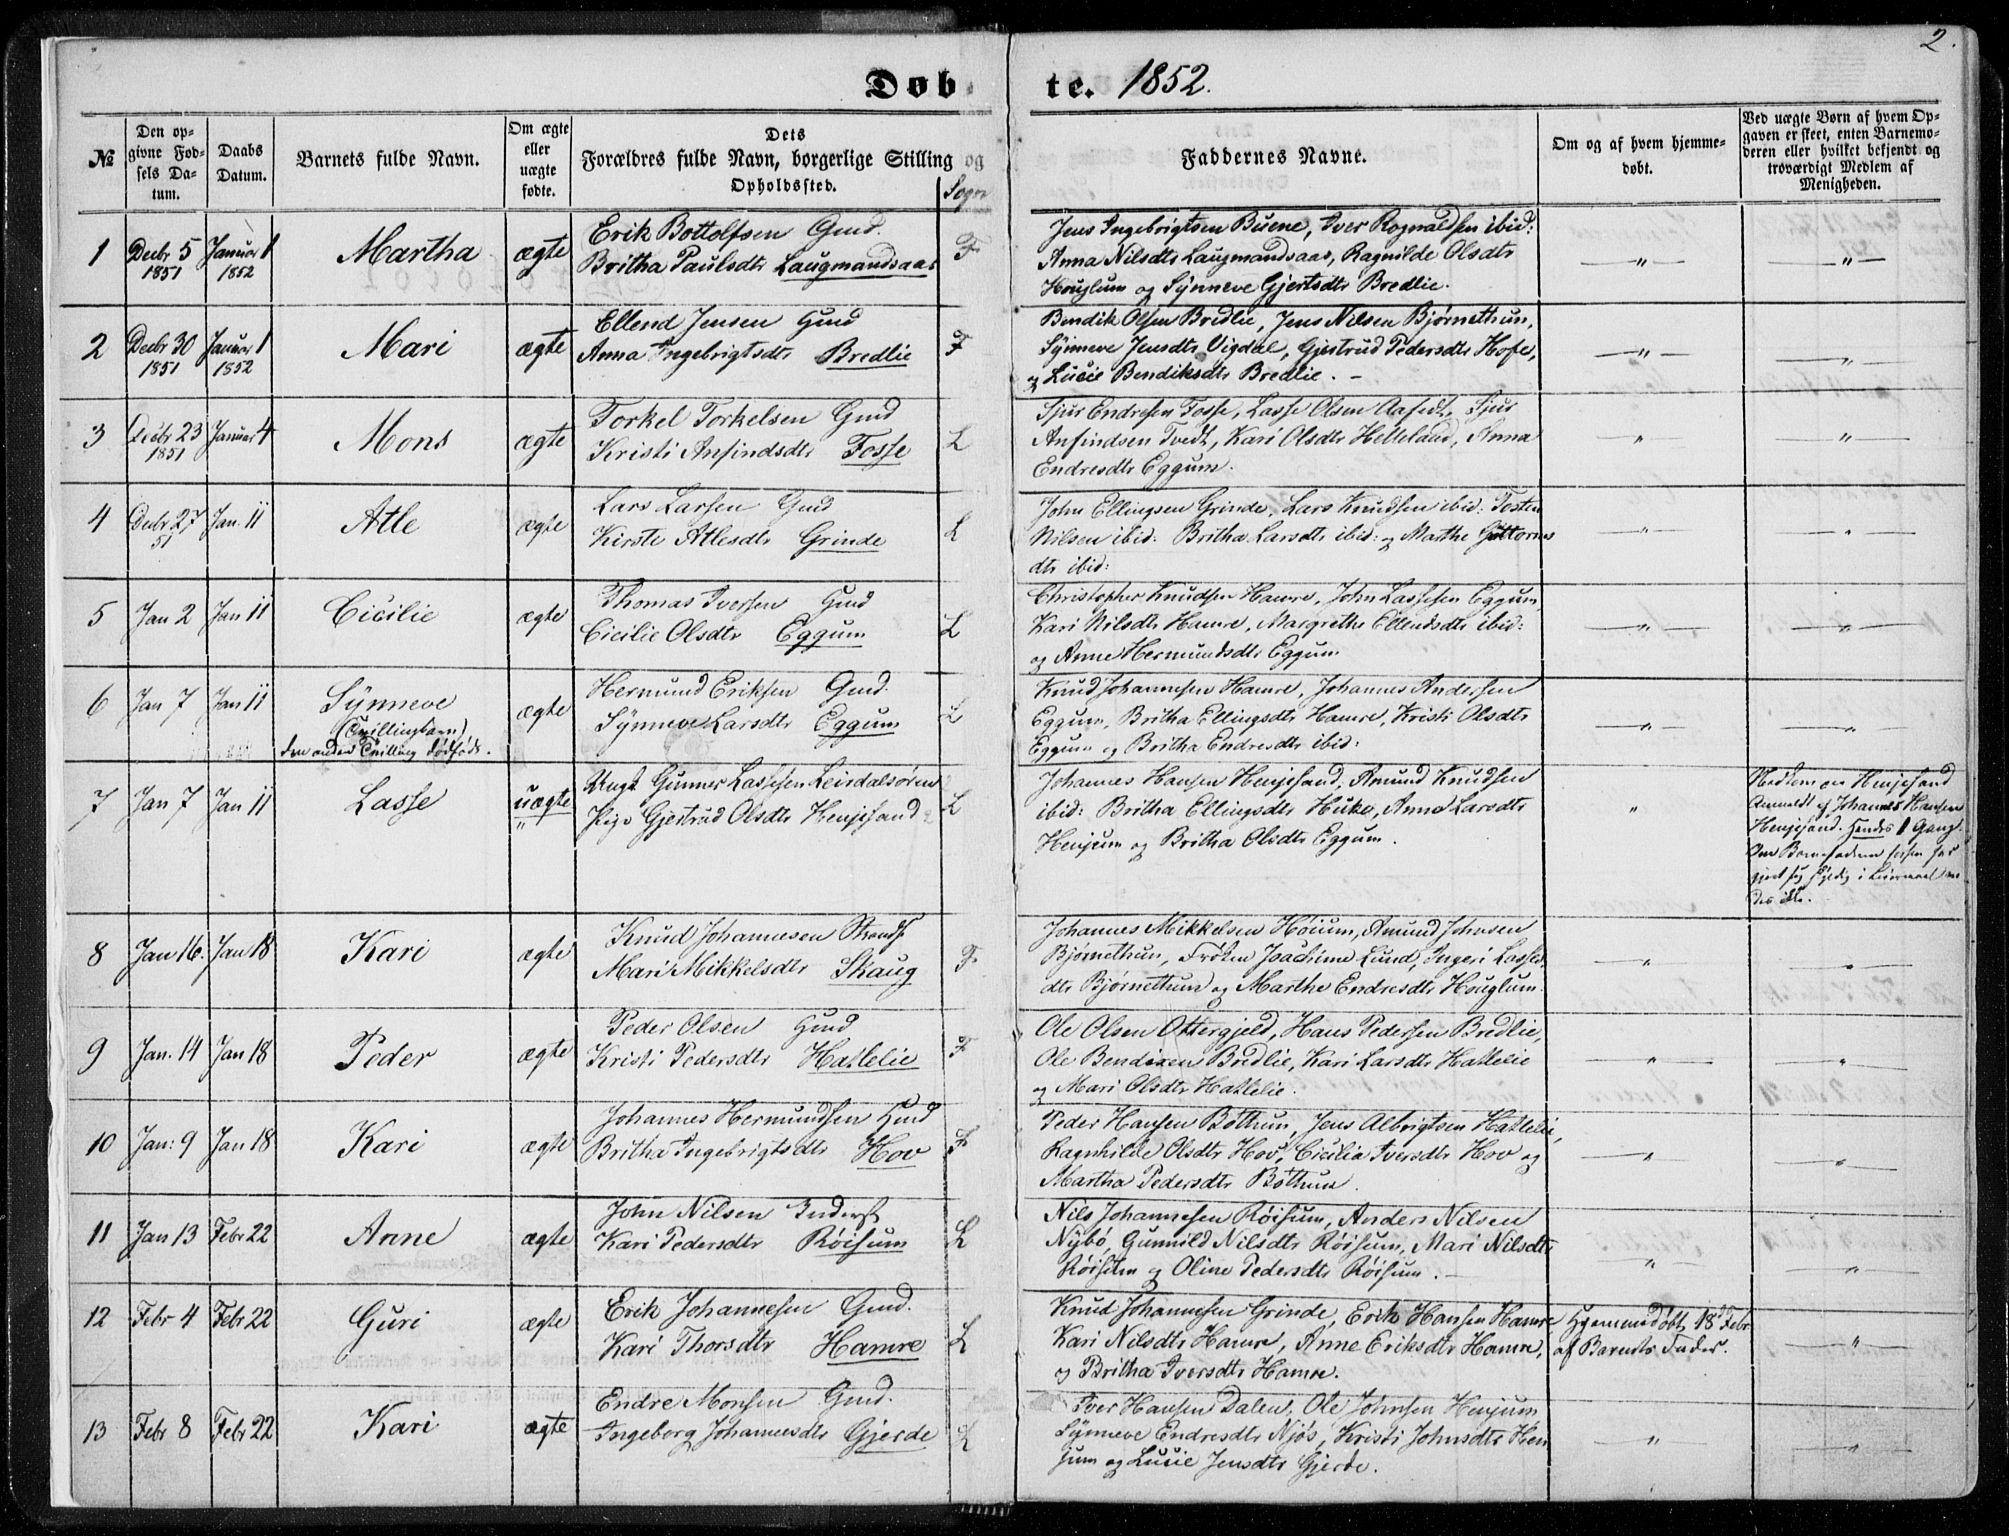 2.
Døbte. 1852.
№
Den opgivne Fødsels Datum.
Daabs Datum.
Barnets fulde Navn.
Om ægte eller uægte fødte.
Dets Forældres fulde Navn, borgerlige Stilling og Opholdssted.
Sogn
Faddernes Navne.
Om og af hvem hjemmedøbt.
Ved uægte Børn af hvem Opgaven er skeet, enten Barnemoderen eller hvilket bekjendt og troværdigt Medlem af Menigheden.
1 Decbr 5 1851 Januar 1 1852 Martha ægte
Erik Bottolfsen Gmd.
Britha Paulsdtr Laugmandsaas F
Jens Ingebrigtsen Buene, Iver Rognaldsen ibid:
Anna Nilsdtr Laugmandsaas, Ragnilde Olsdtr
Houglum og Synneve Gjertsdtr Bredlie.
2 Decbr 30 1851 Januar 1 1852 Mari ægte
Ellend Jensen Gmd
Anna Ingebrigtsdtr Bredlie F
Bendik Olsen Bredlie, Jens Nilsen Bjørnethun,
Synneve Jensdtr Vigdal, Gjertrud Pedersdtr Hofe,
og Lucie Bendiksdtr Bredlie. -
3 Decbr 23 1851 Januar 4 Mons ægte
Torkel Torkelsen Gmd
Kristi Anfindsdtr Fosse L
Sjur Endresen Fosse, Lasse Olsen Aafedt, Sjur
Anfindsen Tvedt, Kari Olsdtr Helleland, Anna
Endresdtr Eggum.
4 Decbr 27 51 Jan. 11 Atle ægte
Lars Larsen Gmd
Kirsti Atlesdtr Grinde L
John Ellingsen Grinde, Lars Knudsen ibid: Tosten
Nilsen ibid: Britha Larsdtr ibid: og Marthe Guttorms
dtr ibid:
5 Jan 2 Jan 11 Cicilie ægte
Thomas Iversen Gmd
Cicilie Olsdtr Eggum L
Christopher Knudsen Hamre, John Lassesen Eggum,
Kari Nilsdtr Hamre, Margrethe Ellendsdtr ibid:
og Anne Hermundsdtr Eggum
6 Jan 7 Jan 11 Synneve ægte
(Tvillingbarn)
den anden Tvilling dødfødt.
Hermund Eriksen Gmd.
Synneve Larsdtr Eggum L
Knud Johannesen Hamre, Johannes Andersen
Eggum, Britha Ellingsdtr Hamre, Kristi Olsdtr
Eggum og Britha Endresdtr ibid:
7 Jan 7 Jan 11 Lasse uægte
Ungk Gunner Lassesen Leirdalsøren
Pige Gjertrud Olsdtr Henjesand L
Johannes Hansen Henjesand, Amund Knudsen
ibid: Britha Ellingsdtr Huke, Anna Larsdtr
Henjum og Britha Olsdtr Eggum.
Henjesand
Anmeldt af Johannes Hansen
Henjesand. Hendes 1 Gang.
Om Barnefaderen
8 Jan 16. Jan 18 Kari ægte
Knud Johannesen Strands
Mari Mikkelsdtr Skaug F
Johannes Mikkelsen Høium, Amund Johnsen
Bjørnethun, Frøken Joachime Lund, Ingeri Lasses
dtr Bjørnetthun og Marthe Endresdtr Houglum.
9 Jan. 14 Jan 18 Peder ægte
Peder Olsen Hmd
Kristi Pedersdtr Hatlelie F
Ole Olsen Ottergjeld, Hans Pedersen Bredlie,
Ole Bendixen Bredlie, Kari Larsdtr Hatlelie
og Mari Olsdtr Hatlelie.
10 Jan: 9 Jan 18 Kari ægte
Johannes Hermundsen Hmd
Britha Ingebrigtsdtr Hov F
Peder Hansen Bøthun, Jens Albrigtsen Hatlelie,
Ragnhilde Olsdtr Hov, Cicilia Iversdtr Hov og
Martha Pedersdtr Bøthun.
11 Jan 13 Febr 22 Anne ægte
John Nilsen Inderst
Kari Pedersdtr Røisum L
Nils Johannesen Røisum, Anders Nilsen
Nybø, Gunnild Nilsdtr Røisum, Mari Nilsdtr
Røisum og Oline Pedersdtr Røisum. -
12 Febr 4 Febr 22 Guri ægte
Erik Johannesen Gmd.
Kari Thorsdtr Hamre L
Knud Johannesen Grinde, Erik Hansen Hamre
Kari Nilsdtr Hamre, Anne Eriksdtr Hamre,
og Britha Iversdtr Hamre.
Hjemmedøbt 18de Febr
af Barnets Fader.
13 Febr 8 Febr 22 Kari ægte
Endre Monsen Gmd.
Ingeborg Johannesdtr Gjerde L
Iver Hansen Dalen, Ole Johnsen Henjum
Synneve Endresdtr Njøs, Kristi Johnsdtr Hen
jum og Lucie Jensdtr Gjerde.